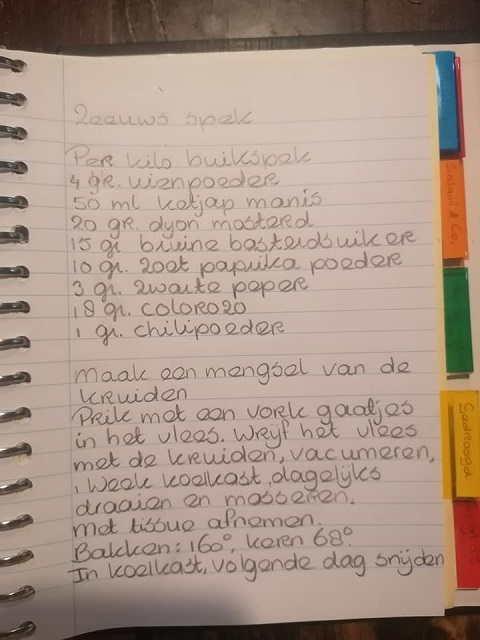 Zeeuws spek
Per kilo buikspek
4 gr. uienpoeder
50 ml ketjap manis
20 gr. dyon mosterd
15 gr bruine basterdsuiker
10 gr. zoet paprika poeder
3 gr. zwarte peper
18 gr. colorozo
1 gr. chilipoeder
maak een mengsel van de
kruiden
Prik met een vork gaatjes
in het vlees. Wrijf het vlees
met de kruiden, vacumeren,
1 week koelkast, dagelijks
draaien en masseren.
met tissue afnemen.
Bakken: 160°, keren 68°
In koelkast, volgende dag snijden
Salami & Co.
Gedroogd